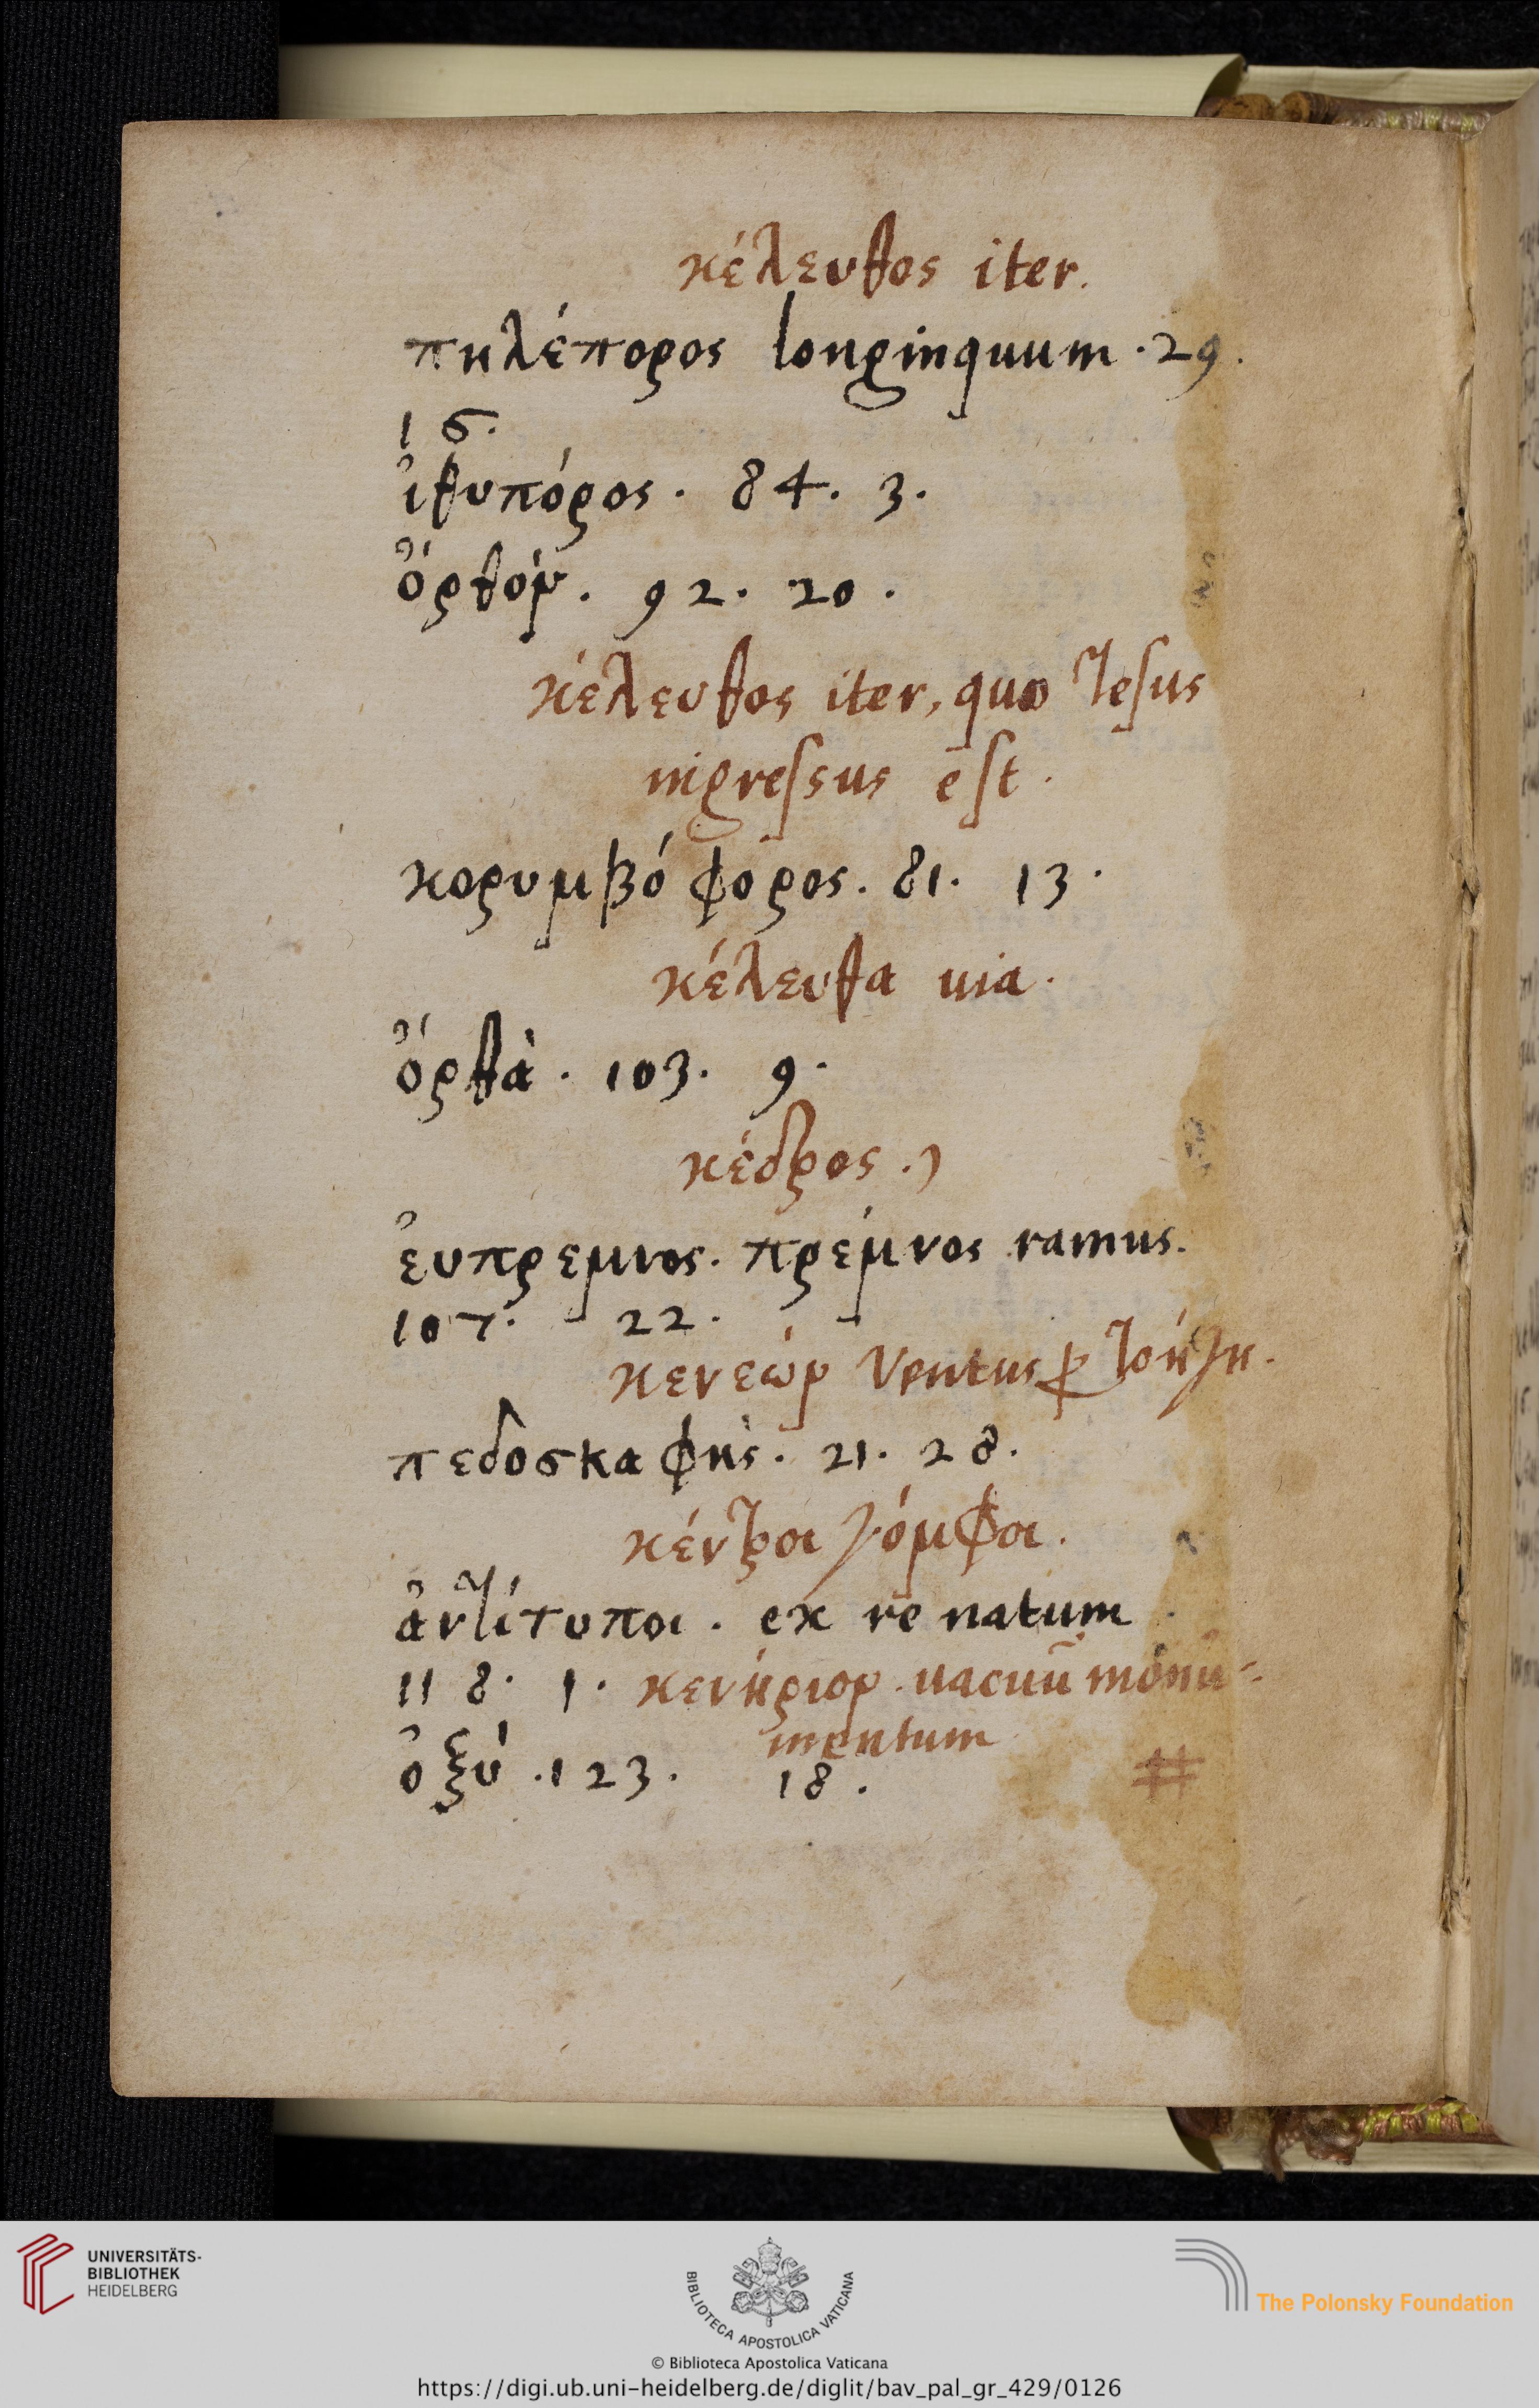 κέλευθος iter.
πηλέπορος longinquum . 29.
16.
ἰθυπόρος . 84. 3.
ὄρθον . 92. 20 .
κέλευθος iter, quo Iesus
ingressus est .
κορυμβόφορος . 81. 13.
κέλευθα uia .
ὄρθὰ . 103. 9.
κέδρος .
ἐυπρεμνος . πρέμνος ramus.
107. 22.
κενεὼν Ventus
πεδοσκαφὴς . 21. 28.
κέντροι γόμφοι .
ἀντίτυποι . ex re natum
118. 1. κενήριον . uacuū monu-
mentum
ὀξύ . 123. 18 .
UNIVERSITÄTS-
BIBLIOTHEK
HEIDELBERG
BIBLIOTECA APOSTOLICA VATICANA
The Polonsky Foundation
© Biblioteca Apostolica Vaticana
https://digi.ub.uni-heidelberg.de/diglit/bav_pal_gr_429/0126